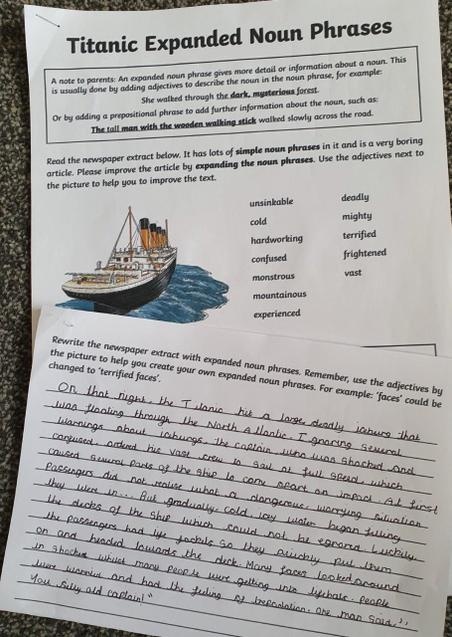 Titanic Expanded Noun Phrases
A note to parents: An expanded noun phrase gives more detail or information about a noun. This
is usually done by adding adjectives to describe the noun in the noun phrase, for example:
She walked through the dark, mysterious forest.
Or by adding a prepositional phrase to add further information about the noun, such as:
The tall man with the wooden walking stick walked slowly across the road.
Read the newspaper extract below. It has lots of simple noun phrases in it and is a very boring
article. Please improve the article by expanding the noun phrases. Use the adjectives next to
the picture to help you to improve the text.
unsinkable
cold
hardworking
confused
monstrous
mountainous
experienced
deadly
mighty
terrified
frightened
vast
Rewrite the newspaper extract with expanded noun phrases. Remember, use the adjectives by
the picture to help you create your own expanded noun phrases. For example: 'faces' could be
changed to 'terrified faces'.
On that night, the Titanic hit a large, deadly iceburg that
was floating through the North Atlantic. Ignoring several
warnings about iceburgs, the captain, who was shocked and
confused, ordered his vast crew to sail at full speed which
caused several parts of the ship to come apart on impact. At first
Passengers did not realise what a dangerous, worrying situation
they were in... But gradually, cold icy water began filling
the decks of the ship which could not be ignored. Luckily
the passengers had life jackets so they quickly put them
on and headed towards the deck. Many faces looked around
in shocked whilst many people were getting into lifeboats. People
were worried and had the feeling of trepidation. One man said,
You silly old captain!"